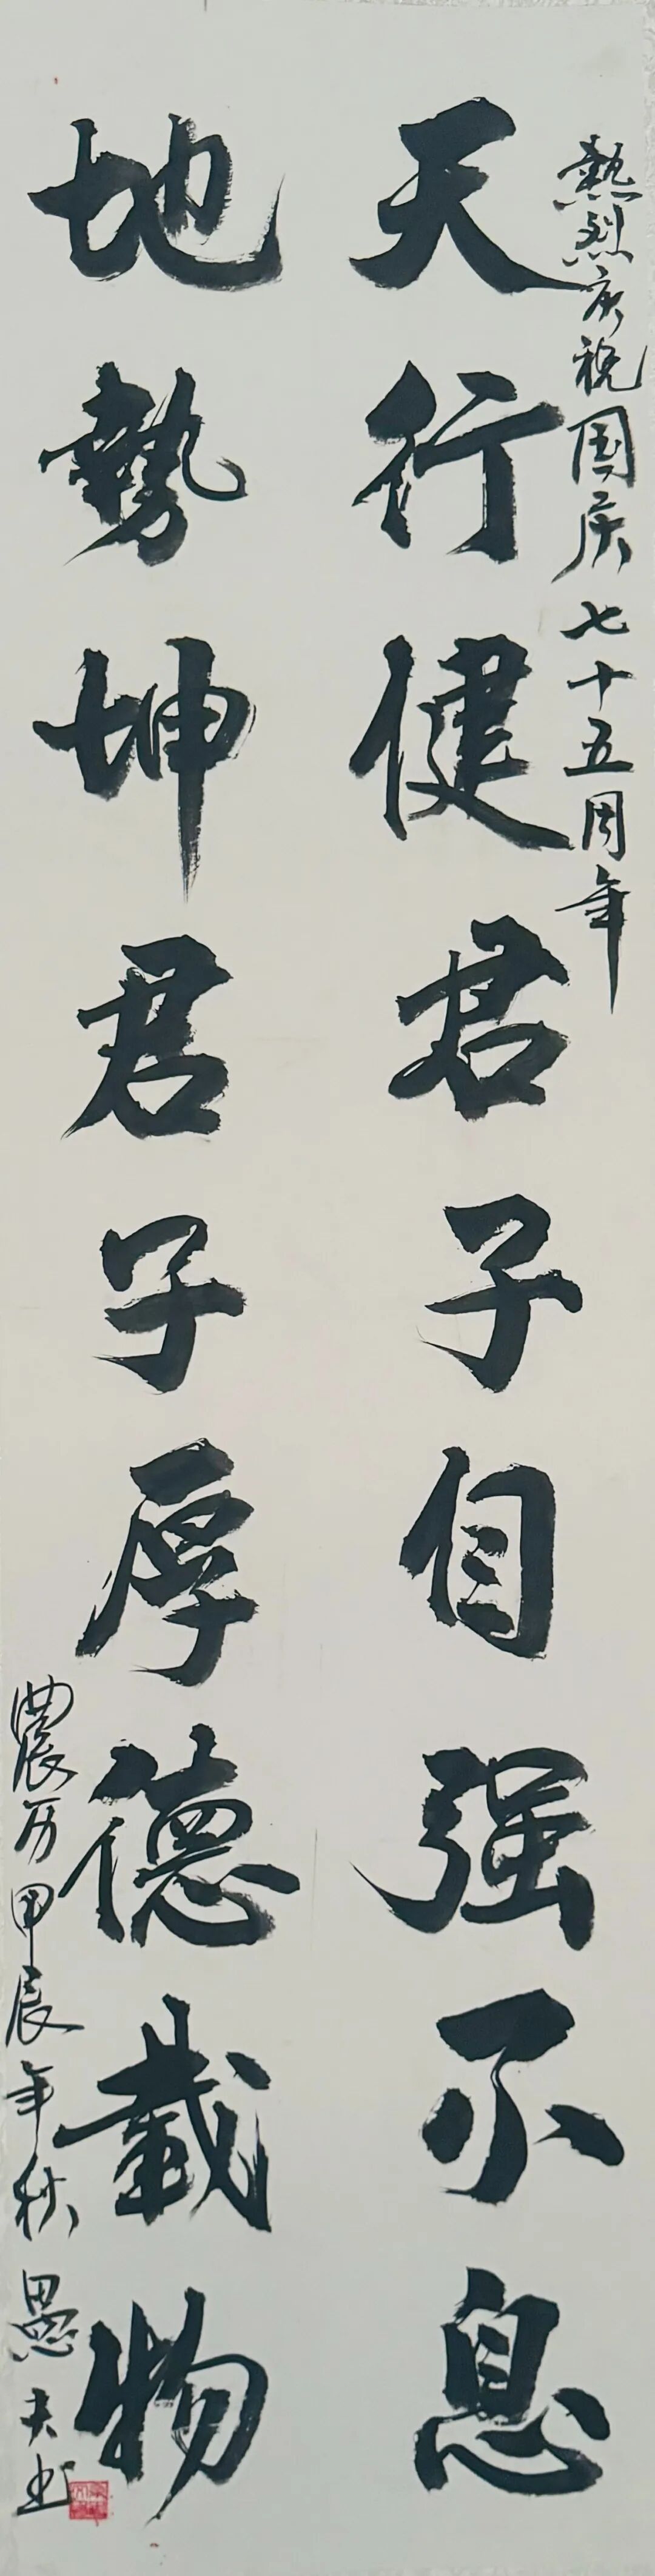 熱烈庆祝国庆七十五周年
天行健君子自强不息
地勢坤君子厚德載物
農历甲辰年秋愚夫书